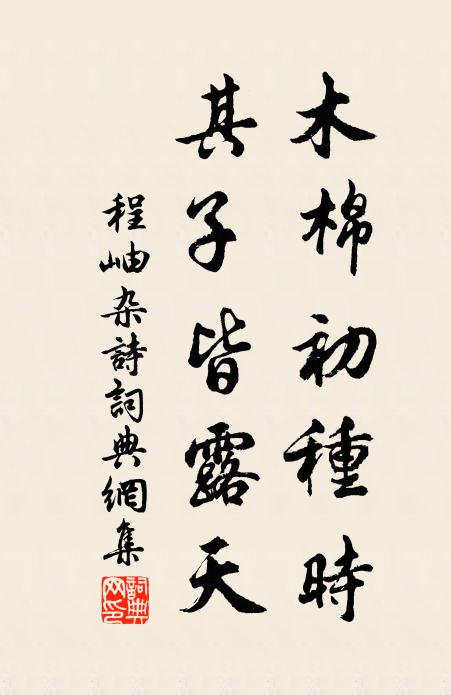 木棉初種時
其子皆露天
程岫杂詩詞典網集
詞典
网印